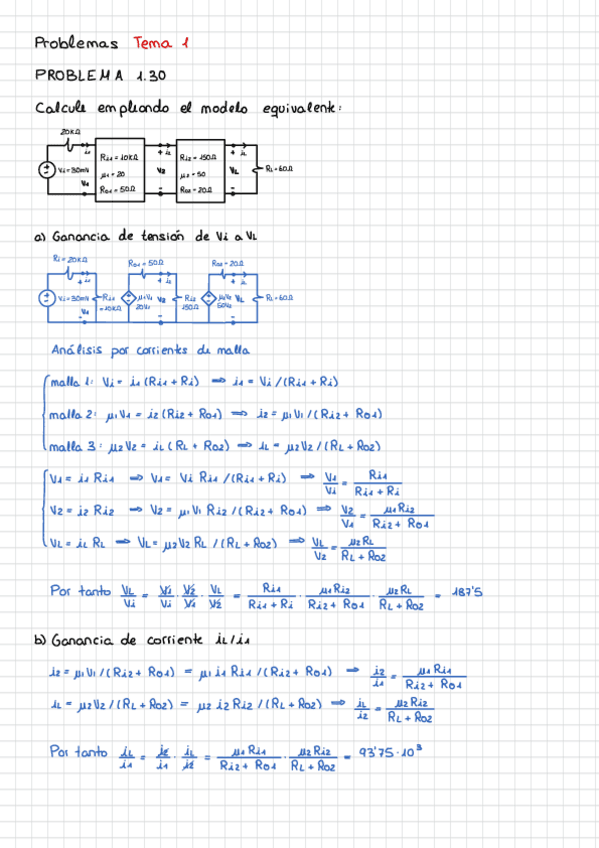 Problemas Tema 1
PROBLEMA 1.30
Calcule empleando el modelo equivalente:
20KΩ
Vi=30mV
i1
V1
Ri1 = 10KΩ
μ1 = 20
Ro1 = 50Ω
i2
V2
Ri2 = 150Ω
μ2 = 50
Ro2 = 20Ω
iL
VL
RL=60Ω
a) Ganancia de tensión de Vi a VL
Ri=20KΩ
Ro1=50Ω
Ro2=20Ω
Vi=30mV
i1
V1
Ri1 = 10KΩ
μ1V1
20V1
i2
V2
Ri2
150Ω
μ2V2
50V2
iL
VL
RL=60Ω
Análisis por corrientes de malla
malla 1: Vi = i1 (Ri1 + Ri) ⇒ i1 = Vi / (Ri1 + Ri)
malla 2: μ1V1 = i2 (Ri2 + Ro1) ⇒ i2 = μ1V1 / (Ri2 + Ro1)
malla 3: μ2V2 = iL (RL + Ro2) ⇒ iL = μ2V2 / (RL + Ro2)
V1 = i1 Ri1 ⇒ V1 = Vi Ri1 / (Ri1 + Ri) ⇒ V1/Vi = Ri1 / (Ri1 + Ri)
V2 = i2 Ri2 ⇒ V2 = μ1V1 Ri2 / (Ri2 + Ro1) ⇒ V2/V1 = μ1Ri2 / (Ri2 + Ro1)
VL = iL RL ⇒ VL = μ2V2 RL / (RL + Ro2) ⇒ VL/V2 = μ2RL / (RL + Ro2)
Por tanto VL/Vi = V1/Vi · V2/V1 · VL/V2 = Ri1 / (Ri1 + Ri) · μ1Ri2 / (Ri2 + Ro1) · μ2RL / (RL + Ro2) = 187'5
b) Ganancia de corriente iL/i1
i2 = μ1V1 / (Ri2 + Ro1) = μ1 i1 Ri1 / (Ri2 + Ro1) ⇒ i2/i1 = μ1Ri1 / (Ri2 + Ro1)
iL = μ2V2 / (RL + Ro2) = μ2 i2 Ri2 / (RL + Ro2) ⇒ iL/i2 = μ2Ri2 / (RL + Ro2)
Por tanto iL/i1 = i2/i1 · iL/i2 = μ1Ri1 / (Ri2 + Ro1) · μ2Ri2 / (RL + Ro2) = 93'75·10³